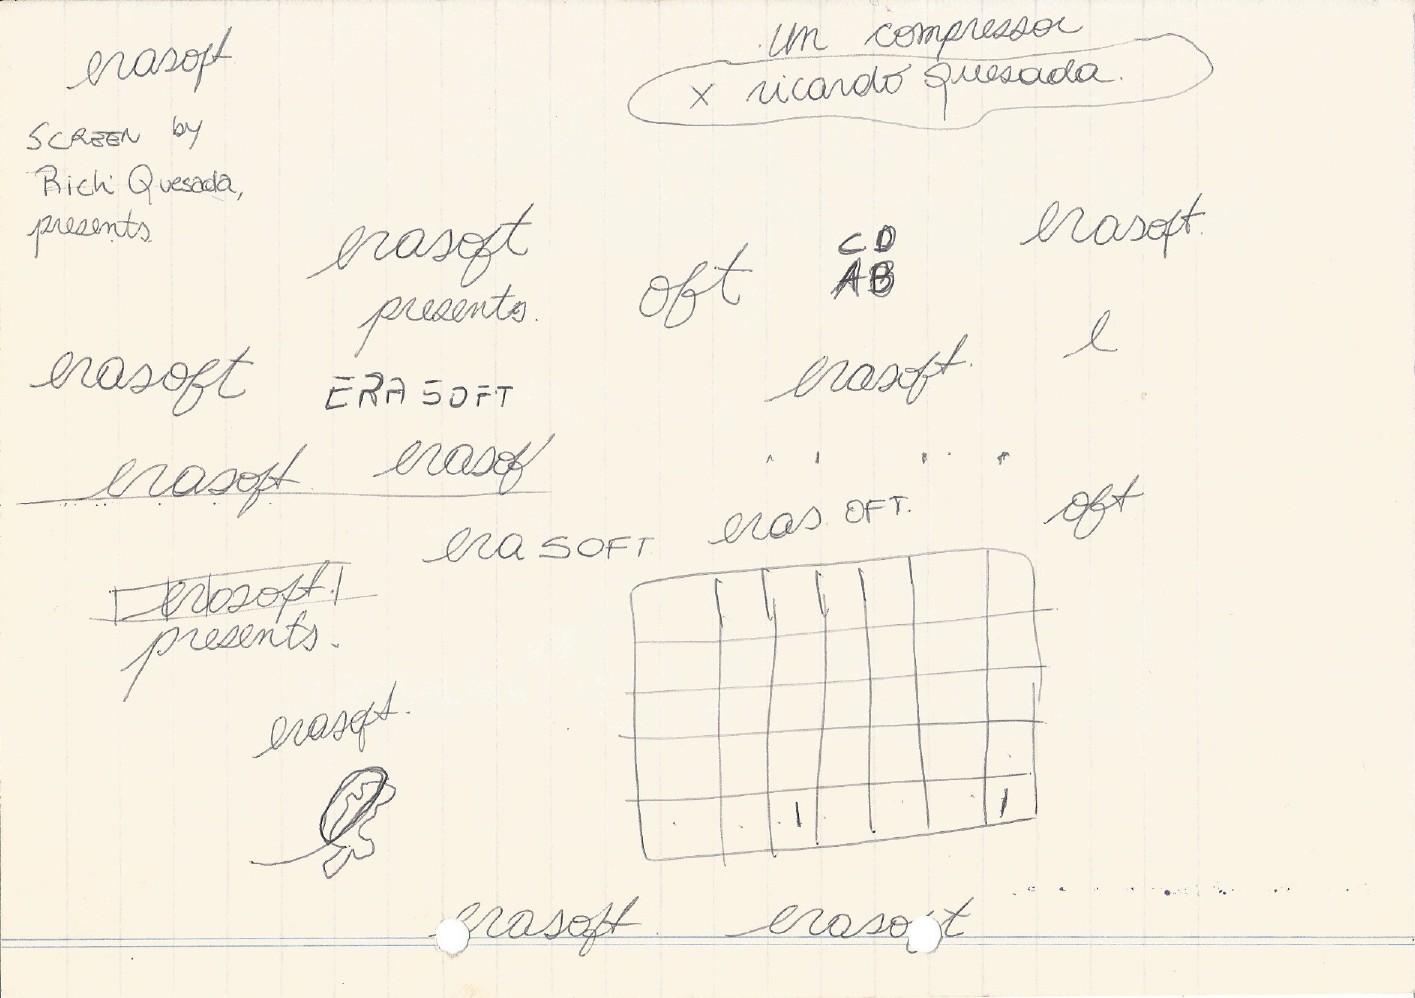 erasoft
un compressor
x ricardo quesada.
SCREEN by
Rich Quesada,
presents
erasoft
presents.
oft
CD
AB
erasoft.
e
erasoft
ERASOFT
erasoft.
erasoft
erasof
eraSOFT
erasOFT.
oft
erasoft.
presents.
erasoft.
erasoft
erasoft